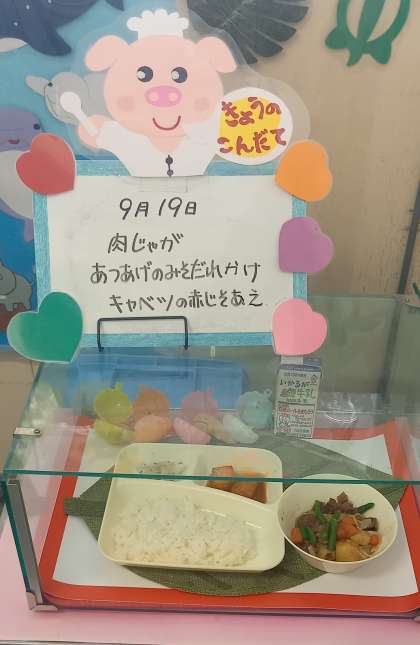 きょうの
こんだて
9月19日
肉じゃが
あつあげのみそだれかけ
キャベツの赤じそあえ
いかるが
牛乳